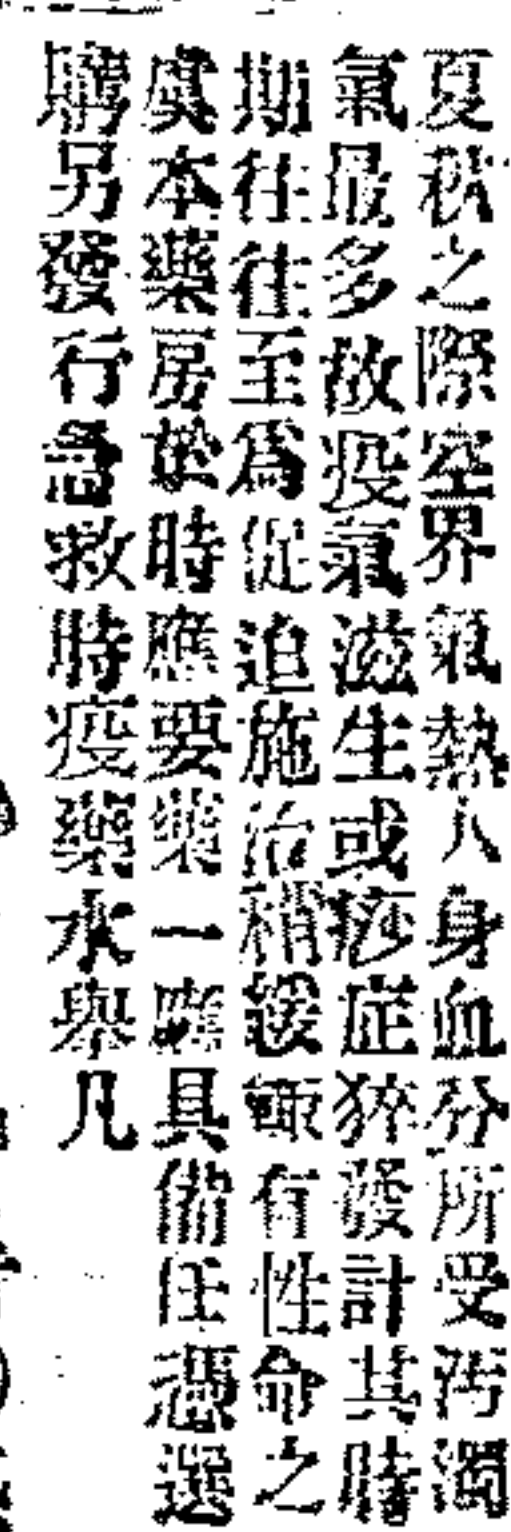 夏秋之際空界氣熱人身血分所受污濁
氣最多故疫氣滋生或痧症猝發計其時
期往往至為促迫施治稍緩輙有性命之
虞本藥房於時應要藥一應具備任憑選
購另發行急救時疫藥水舉凡